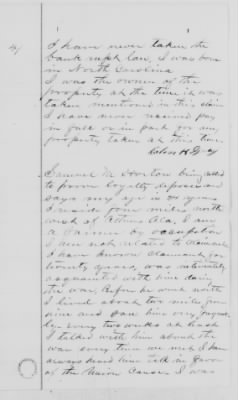 I have never taken the
bankrupt law, I was born
in North Carolina
I was the owner of the
property at the time it was
taken mentioned in this claim
I have never received pay
in full or in part for my
property taken at this time
Samuel M Horton being called
to prove loyalty deposes and
says my age is years
I reside four miles north
west of Athens Ala, I am
a Farmer by occupation
I am not related to claimant
I have known claimant for
twenty years, was intimately
acquainted with him during
the war. Before he went north
I lived about two miles from
him and saw him very frequent
ly every two weeks at least
I talked with him about the
war every time we met I have
always heard him talk in favor
of the Union Cause I was